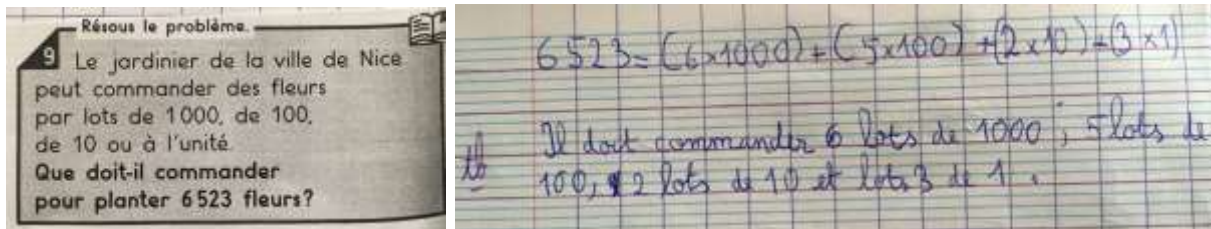 Résous le problème.
9 Le jardinier de la ville de Nice
peut commander des fleurs
par lots de 1 000, de 100,
de 10 ou à l'unité.
Que doit-il commander
pour planter 6 523 fleurs ?
6 523 = (6 x 1000) + (5 x 100) + (2 x 10) + (3 x 1)
Il doit commander 6 lots de 1000, 5 lots de
tb 100, 2 lots de 10 et lots 3 de 1.